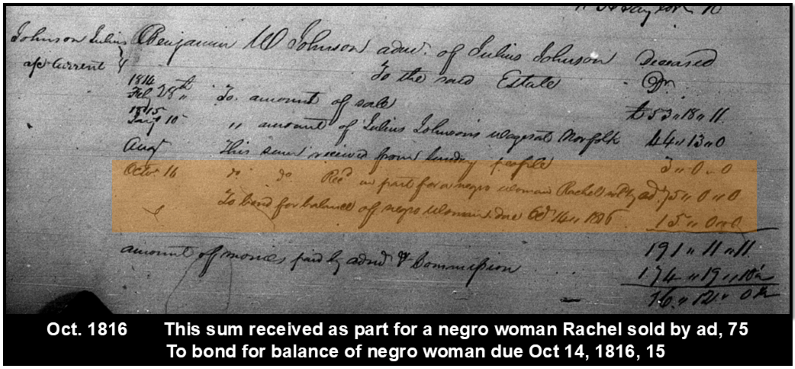 Johnson Julius Benjamin W Johnson admr. of Julius Johnson Deceased
a/c Current
To the said Estate Dr
1814
Feb 28th To amount of sale £53 " 18 " 11
1815
Jany 10 " amount of Julius Johnson's wages at Norfolk 44 " 13 " 0
Aug This sum received from sundry people 3 " 0 " 0
Octr 16 Do Do Recd in part for a negro woman Rachel sold by ad. 75 " 0 " 0
To bond for balance of negro woman due Oct 14 15 " 0 " 0
191 " 11 " 11
amount of monies paid by admr & Commission 174 " 19
Oct. 1816 This sum received as part for a negro woman Rachel sold by ad, 75
To bond for balance of negro woman due Oct 14, 1816, 15